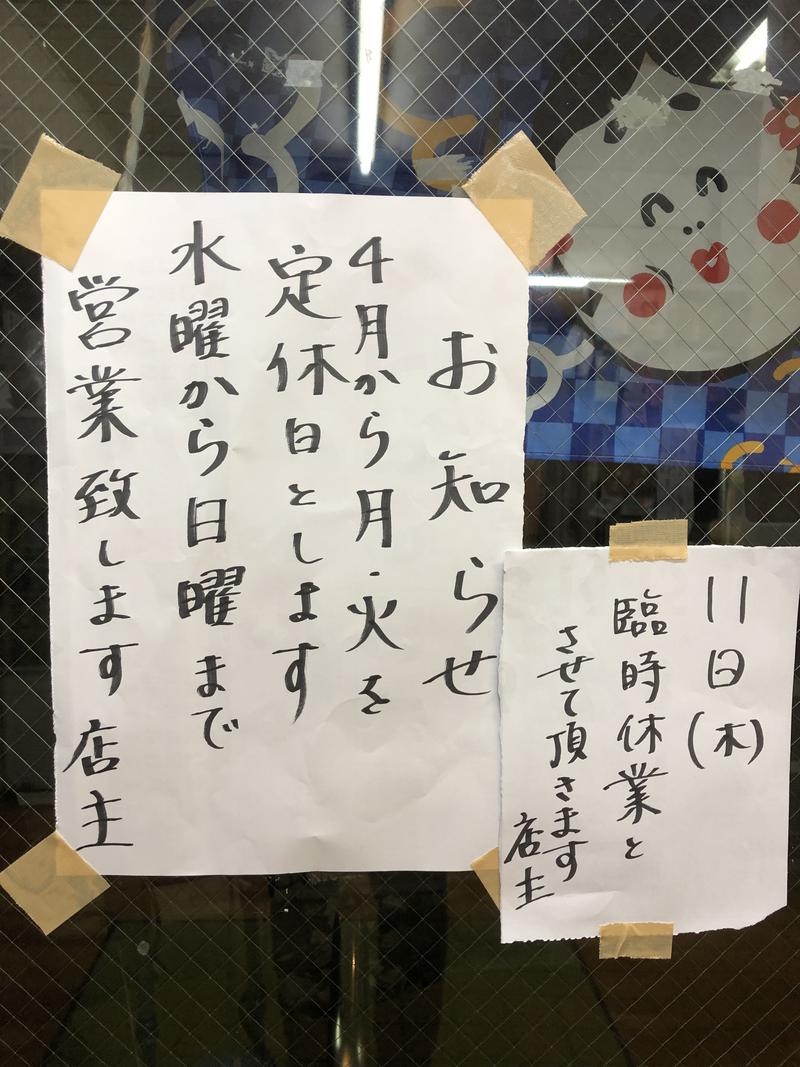 お知らせ
4月から月・火を
定休日とします
水曜から日曜まで
営業致します 店主
11日(木)
臨時休業と
させて頂さます
店主